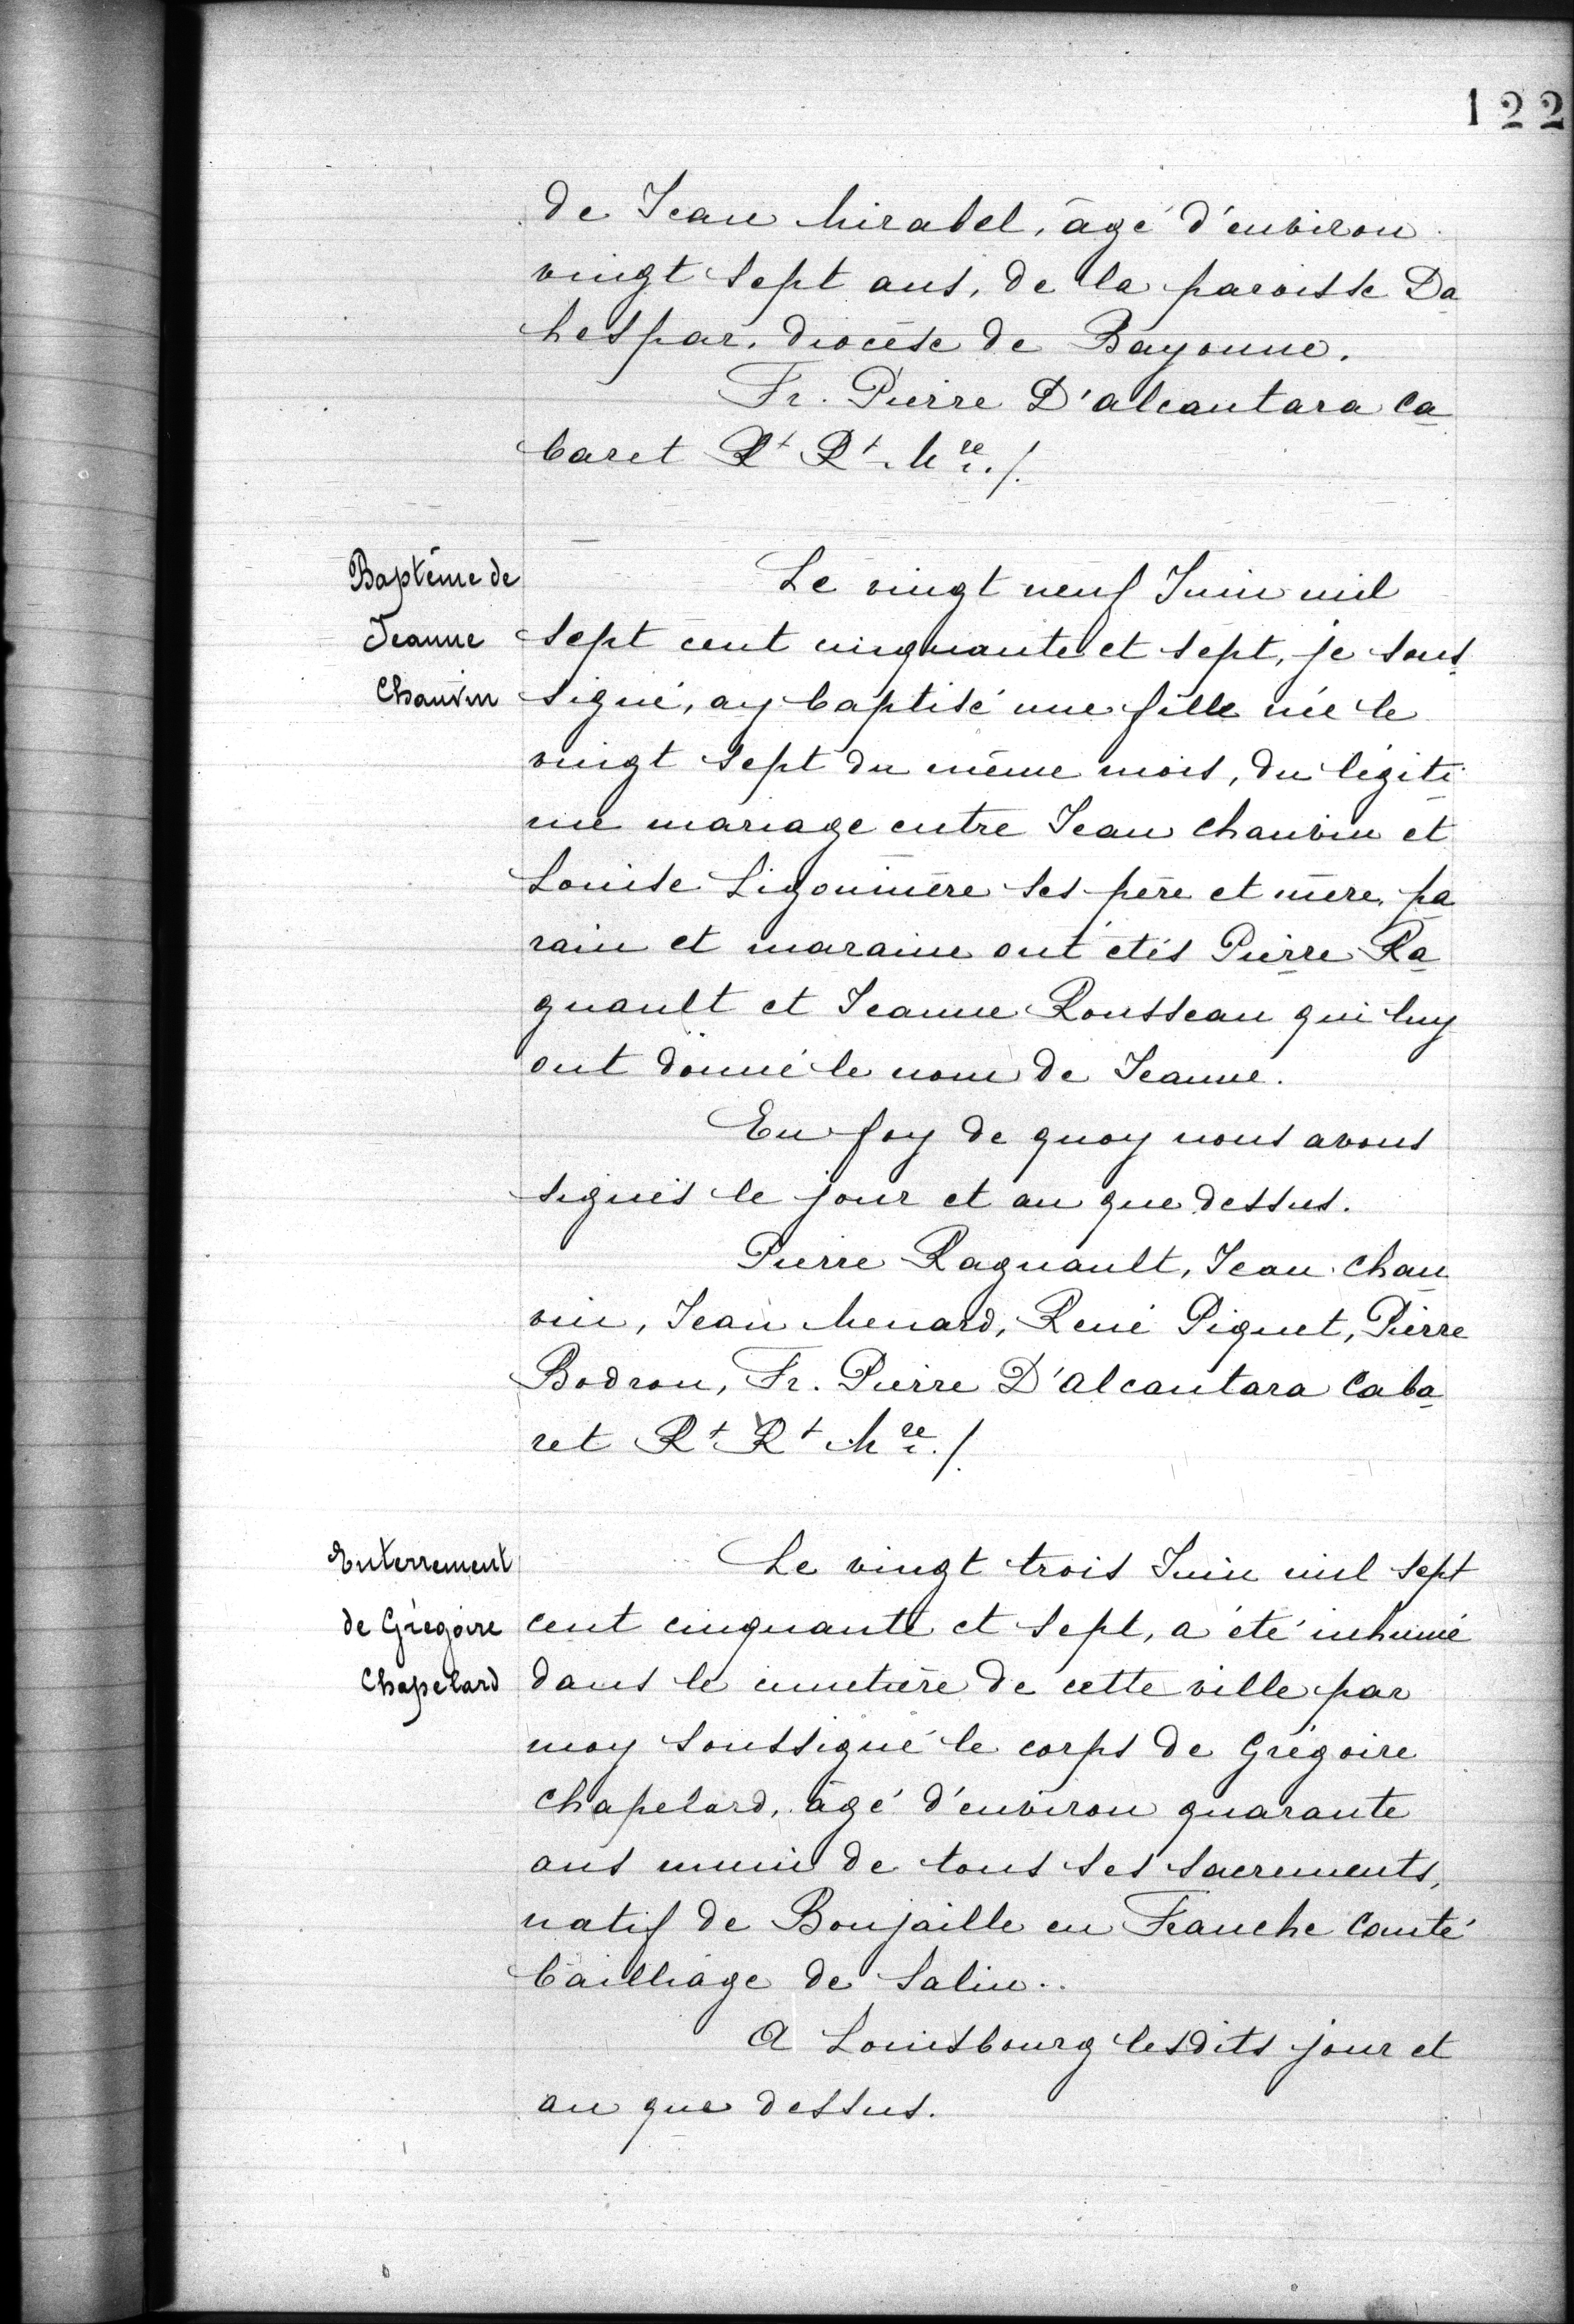 122
de Jean Mirabel, âgé d'environ
vingt sept ans, de la paroisse Da
hespar, diocèse de Bayonne.
Fr. Pierre D'alcantara Ca
baret Rt Rt Mre./.
Baptême de
Jeanne
Chauvin
Le vingt neuf Juin mil
sept cent cinquante et sept, je sous
signé, ay baptisé une fille née le
vingt sept du même mois, du légiti
me mariage entre Jean Chauvin et
Louise Ligonnière ses père et mère, pa
rain et maraine ont étés Pierre Ra
guault et Jeanne Rousseau qui luy
ont donné le nom de Jeanne.
En foy de quoy nous avons
signés le jour et an que dessus.
Pierre Raguault, Jean Chau
vin, Jean Menard, René Piquet, Pierre
Bodron, Fr. Pierre D'alcantara Caba
ret Rt Rt Mre./.
Enterrement
de Grégoire
Chapelard
Le vingt trois Juin mil sept
cent cinquante et sept, a été inhumé
dans le cimetière de cette ville par
moy soussigné le corps de Grégoire
Chapelard, âgé d'environ quarante
ans muni de tous ses sacrements,
natif de Boujaille en Franche Comté
bailliage de Salin..
A Louisbourg lesdits jour et
an que dessus.